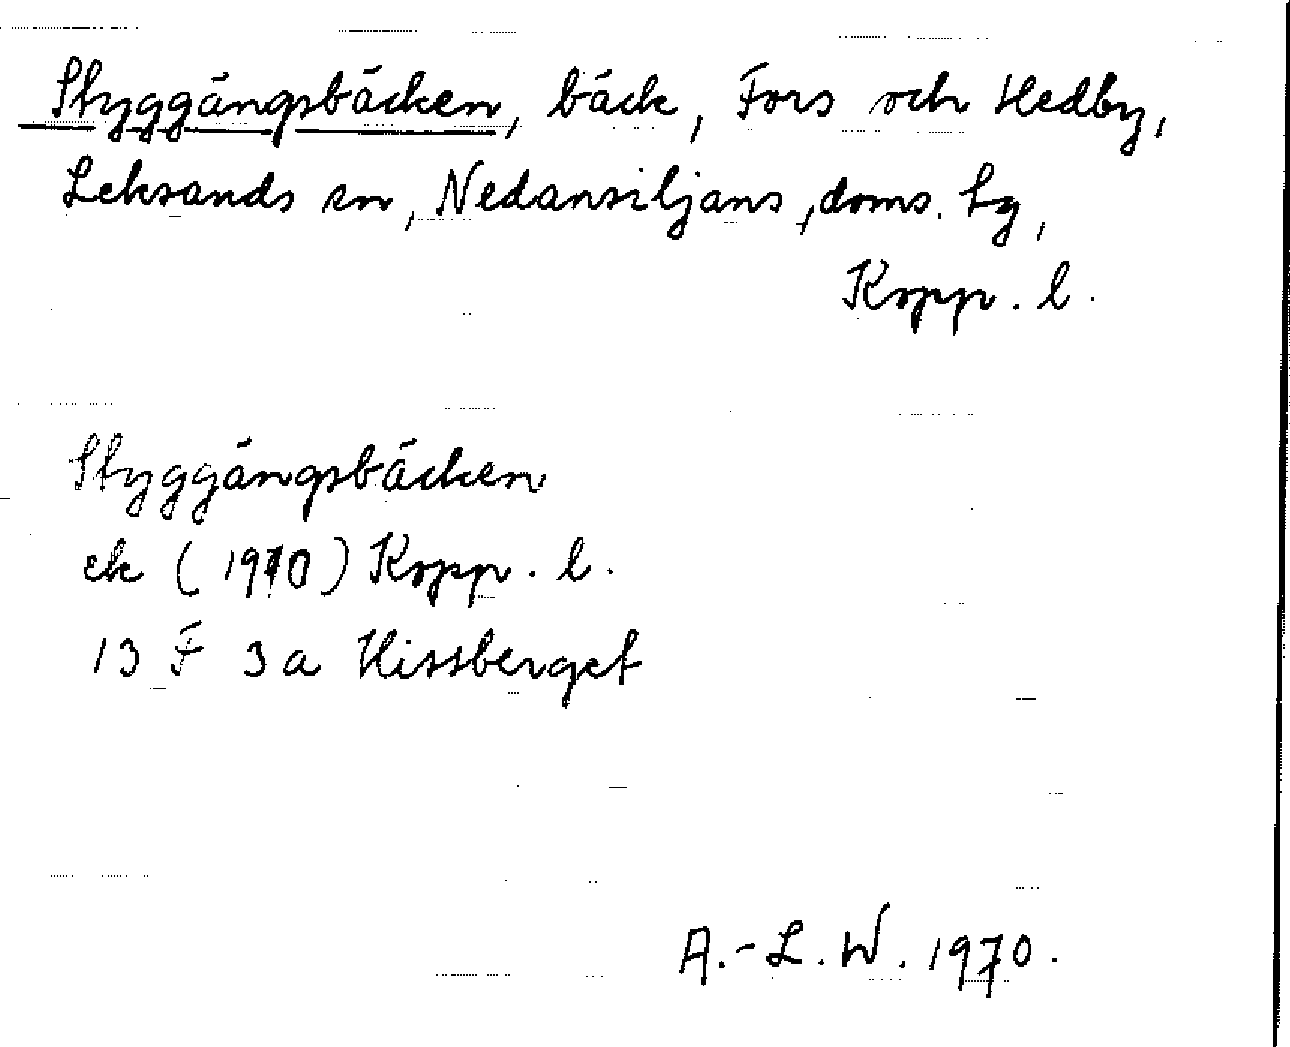 Styggängsbäcken, bäck, Fors och Hedby,
Leksands sn, Nedansiljans, doms. tg,
Kopp. l.
Styggängsbäcken
ek (1970) Kopp. l.
13 F 3a Hissberget
A.-L. W. 1970.